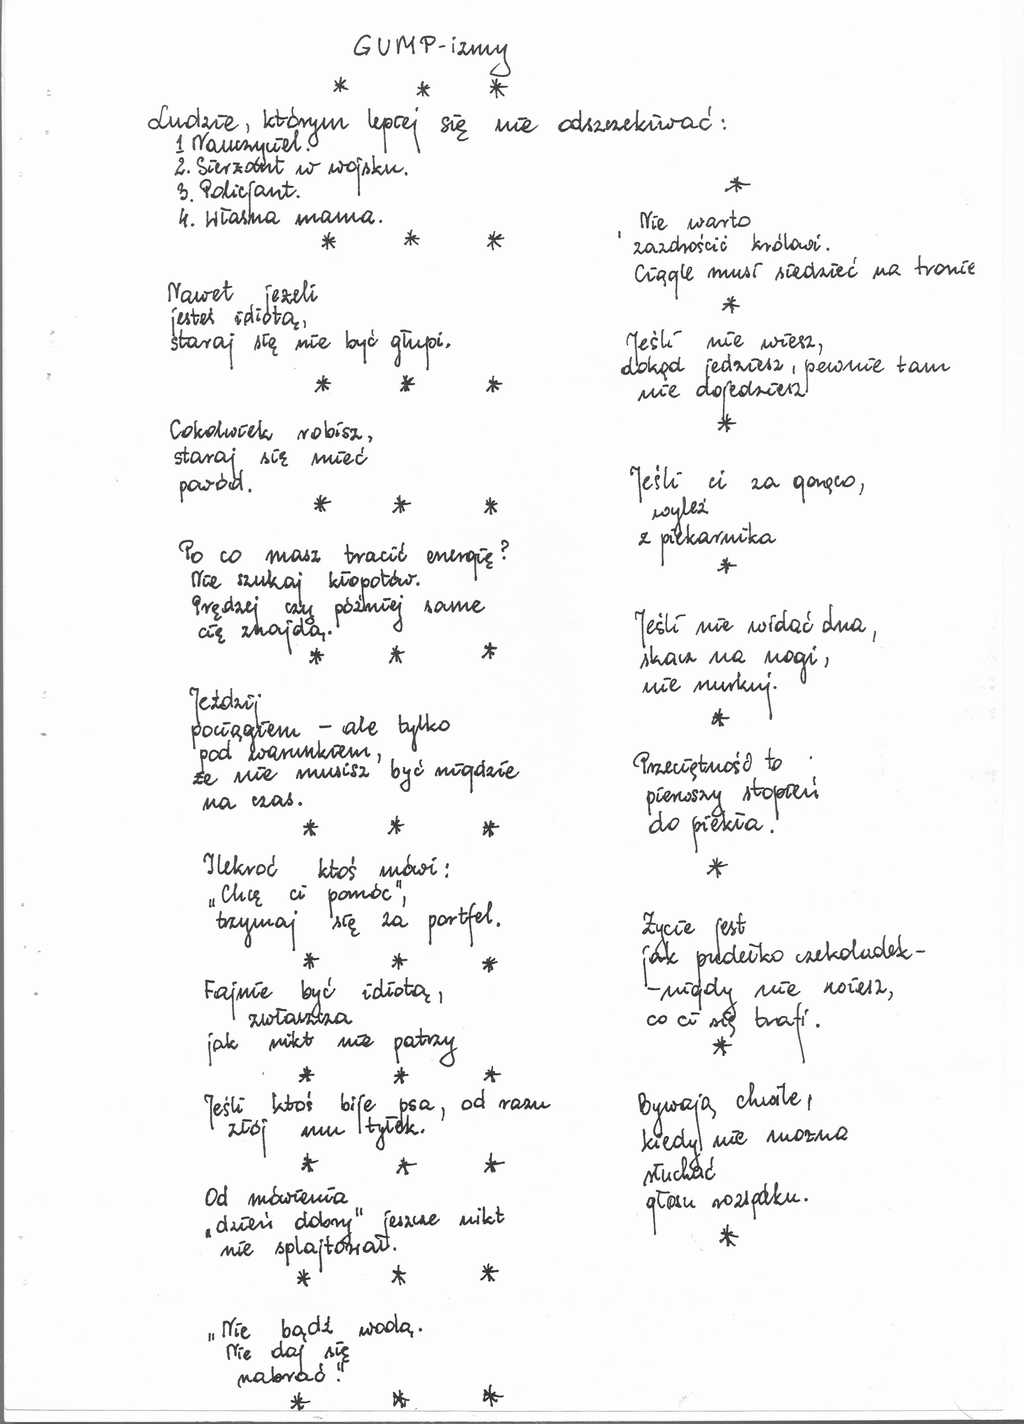 GUMP-izmy
* * *
Ludzie, którym lepiej się nie odszczekiwać:
1 Nauczyciel.
2. Sierżant w wojsku.
3. Policjant.
4. Własna mama.
* * *
Nawet jeżeli
jesteś idiotą,
staraj się nie być głupi.
* * *
Cokolwiek robisz,
staraj się mieć
powód.
* * *
Po co masz tracić energię?
Nie szukaj kłopotów.
Prędzej czy później same
cię znajdą.
* * *
Jeździj
pociągiem – ale tylko
pod warunkiem,
że nie musisz być nigdzie
na czas.
* * *
Ilekroć ktoś mówi:
„Chcę ci pomóc",
trzymaj się za portfel.
* * *
Fajnie być idiotą,
zwłaszcza
jak nikt nie patrzy
* * *
Jeśli ktoś bije psa, od razu
złój mu tyłek.
* * *
Od mówienia
„dzień dobry" jeszcze nikt
nie splajtował.
* * *
„Nie bądź wodą.
Nie daj się
nabrać!"
* * *
*
Nie warto
zazdrościć królowi.
Ciągle musi siedzieć na tronie
*
Jeśli nie wiesz,
dokąd jedziesz, pewnie tam
nie dojedziesz
*
Jeśli ci za gorąco,
wyleź
z piekarnika
*
Jeśli nie widać dna,
skacz na nogi,
nie nurkuj.
*
Przeciętność to
pierwszy stopień
do piekła.
*
Życie jest
jak pudełko czekoladek –
– nigdy nie wiesz,
co ci się trafi.
*
Bywają chwile,
kiedy nie można
słuchać
głosu rozsądku.
*